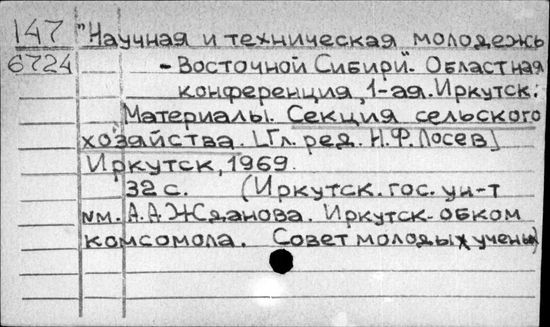 147 "Научная и техническая молодежь
6724 - Восточной Сибири". Областная
конференция, 1-ая. Иркутск.
Материалы. Секция сельского
хозяйства. [Гл. ред. Н.Ф. Лосев]
Иркутск, 1969.
32 с. (Иркутск. гос. ун-т
им. А.А. Жданова. Иркутск. обком
комсомола. Совет молодых ученых)